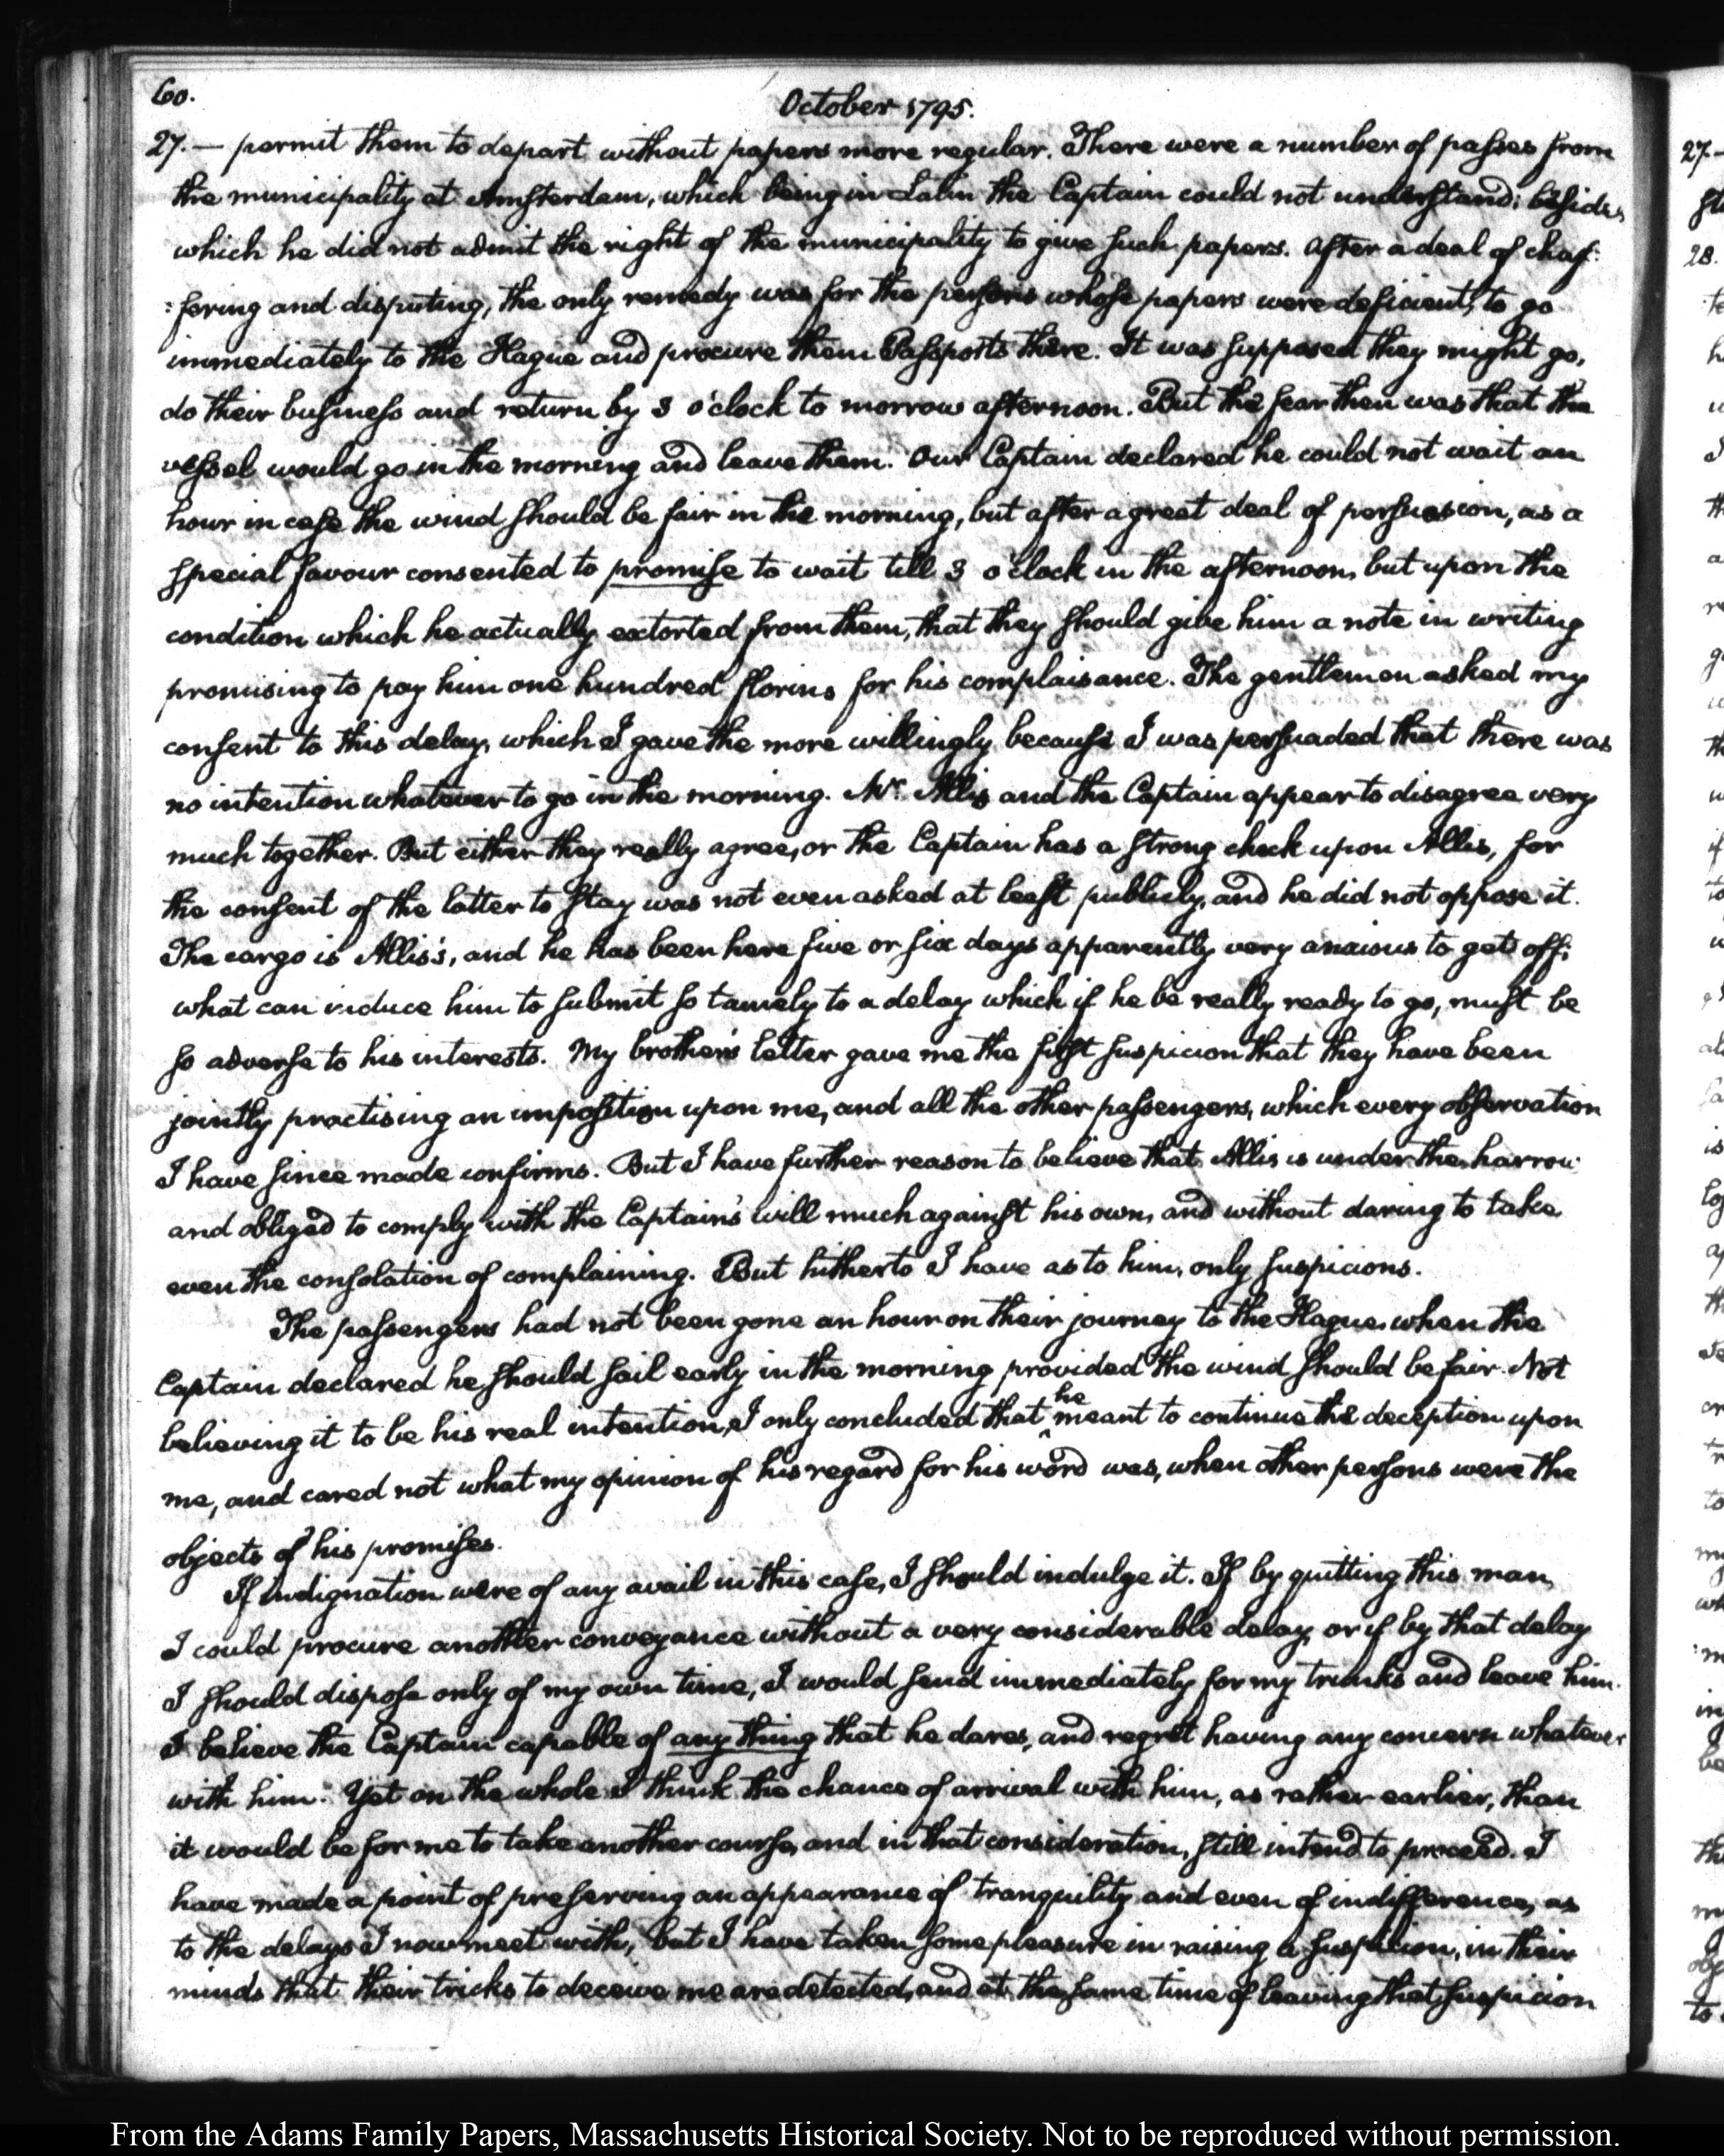 60.
October 1795.
27. — permit them to depart without papers more regular. There were a number of passes from
the municipality at Amsterdam, which being in Latin the Captain could not understand; besides
which he did not admit the right of the municipality to give such papers. After a deal of chaf:
:fering and disputing, the only remedy was for the persons whose papers were deficient, to go
immediately to the Hague and procure them Passports there. It was supposed they might go,
do their business and return by 3 o'clock to morrow afternoon. But the fear then was that the
vessel would go in the morning and leave them. Our Captain declared he could not wait an
hour in case the wind should be fair in the morning, but after a great deal of persuasion, as a
special favour consented to promise to wait till 3 o'clock in the afternoon, but upon the
condition which he actually extorted from them, that they should give him a note in writing
promising to pay him one hundred florins for his complaisance. The gentlemen asked my
consent to this delay, which I gave the more willingly because I was persuaded that there was
no intention whatever to go in the morning. Mr. Allis and the Captain appear to disagree very
much together. But either they really agree, or the Captain has a strong check upon Allis, for
the consent of the latter to stay was not even asked at least publicly, and he did not oppose it.
The cargo is Allis's, and he has been here five or six days apparently very anxious to get off;
what can induce him to submit so tamely to a delay which if he be really ready to go, must be
so adverse to his interests. My brother's letter gave me the first suspicion that they have been
jointly practising an imposition upon me, and all the other passengers, which every observation
I have since made confirms. But I have further reason to believe that Allis is under the harrow
and obliged to comply with the Captain's will much against his own, and without daring to take
even the consolation of complaining. But hitherto I have as to him, only suspicions.
The passengers had not been gone an hour on their journey to the Hague, when the
Captain declared he should sail early in the morning provided the wind should be fair. Not
believing it to be his real intention, I only concluded that he meant to continue the deception upon
me, and cared not what my opinion of his regard for his word was, when other persons were the
objects of his promises.
If indignation were of any avail in this case, I should indulge it. If by quitting this man,
I could procure another conveyance without a very considerable delay, or if by that delay
I should dispose only of my own time, I would send immediately for my trunks and leave him.
I believe the Captain capable of any thing that he dares, and regret having any concern whatever
with him. Yet on the whole I think the chance of arrival with him, as rather earlier, than
it would be for me to take another course, and in that consideration, still intend to proceed. I
have made a point of preserving an appearance of tranquility and even of indifference, as
to the delays I now meet with, but I have taken some pleasure in raising a suspicion, in their
minds that their tricks to deceive me are detected, and at the same time of leaving that suspicion
27.—
28.
From the Adams Family Papers, Massachusetts Historical Society. Not to be reproduced without permission.